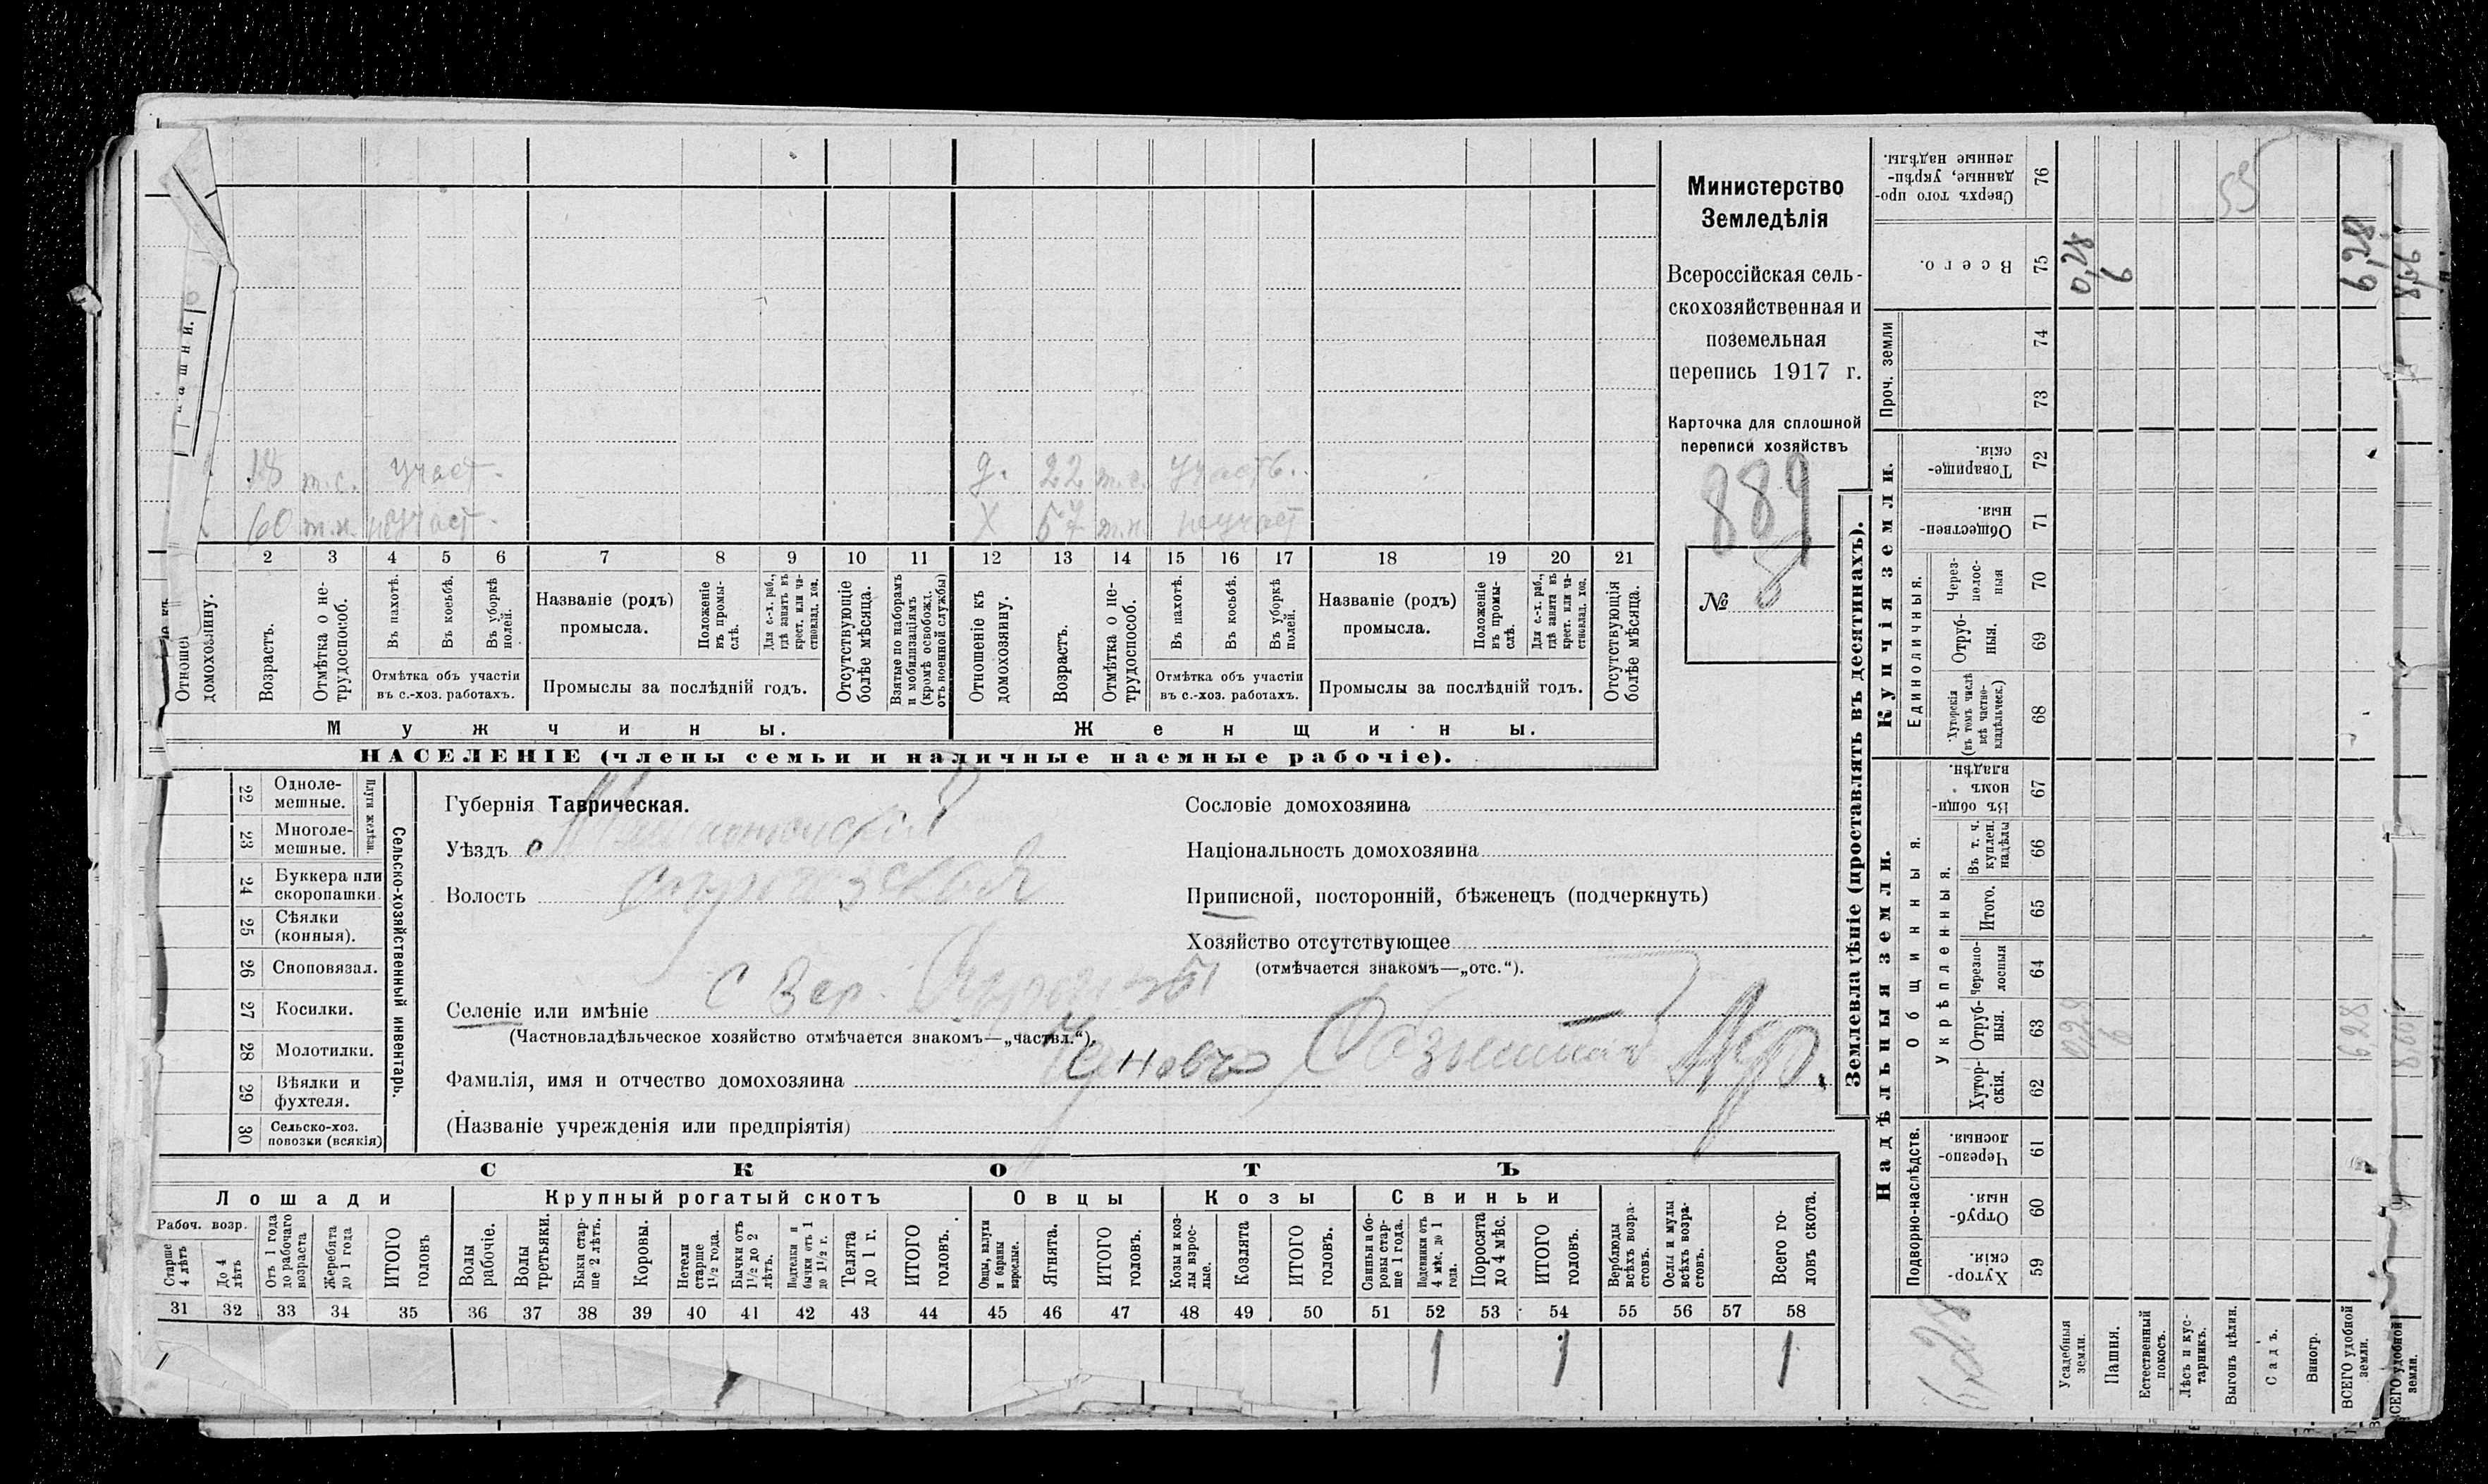 Министерство
Земледѣлія
Всероссійская сель-
скохозяйственная и
поземельная
перепись 1917 г.
Карточка для сплошной
переписи хозяйствъ
889
№ 8
18 т.с. участ.
60 т.н. неучаст.
д. 22 т.с. участв.
Х 57 т.н. неучаст
2 3 4 5 6 7 8 9 10 11 12 13 14 15 16 17 18 19 20 21
домохозяину.
Возрастъ.
Отмѣтка о не-
трудоспособ.
Въ пахотѣ.
Въ косьбѣ.
Въ уборкѣ
полей.
Отмѣтка объ участіи
въ с.-хоз. работахъ.
Названіе (родъ)
промысла.
Положеніе
въ промы-
слѣ.
Для с.-х. раб.,
гдѣ занятъ въ
крест. или ча-
стновлад. хоз.
Промыслы за послѣдній годъ.
Отсутствующіе
болѣе мѣсяца.
Взятые по наборамъ
и мобилизаціямъ
(кромѣ освобожд.
отъ военной службы)
Отношеніе къ
домохозяину.
Возрастъ.
Отмѣтка о не-
трудоспособ.
Въ пахотѣ.
Въ косьбѣ.
Въ уборкѣ
полей.
Отмѣтка объ участіи
въ с.-хоз. работахъ.
Названіе (родъ)
промысла.
Положеніе
въ промы-
слѣ.
Для с.-х. раб.,
гдѣ занята въ
крест. или ча-
стновлад. хоз.
Промыслы за послѣдній годъ.
Отсутствующія
болѣе мѣсяца.
Мужчины.
Женщины.
НАСЕЛЕНІЕ (члены семьи и наличные наемные рабочіе).
22 Одноле-
мешные.
23 Многоле-
мешные.
Плуги желѣзн.
24 Буккера или
скоропашки.
25 Сѣялки
(конныя).
26 Сноповязал.
27 Косилки.
28 Молотилки.
29 Вѣялки и
фухтеля.
30 Сельско-хоз.
повозки (всякія)
Сельско-хозяйственный инвентарь.
Губернія Таврическая.
Уѣздъ
Волость
Селеніе или имѣніе С Вер.
(Частновладѣльческое хозяйство отмѣчается знакомъ—„частвл.“).
Фамилія, имя и отчество домохозяина
(Названіе учрежденія или предпріятія)
Сословіе домохозяина
Національность домохозяина
Приписной, посторонній, бѣженецъ (подчеркнуть)
Хозяйство отсутствующее
(отмѣчается знакомъ—„отс.“).
СКОТЪ
Лошади
Крупный рогатый скотъ
Овцы
Козы
Свиньи
Рабоч. возр.
Старше
4 лѣтъ
До 4
лѣтъ
Отъ 1 года
до рабочаго
возраста
Жеребята
до 1 года
ИТОГО
головъ
Волы
рабочіе.
Волы
третьяки.
Быки стар-
ше 2 лѣтъ.
Коровы.
Нетели
старше
1½ года.
Бычки отъ
1½ до 2
лѣтъ.
Подтелки и
бычки отъ 1
до 1½ г.
Телята
до 1 г.
ИТОГО
головъ.
Овцы, валухи
и бараны
взрослые.
Ягнята.
ИТОГО
головъ.
Козы и коз-
лы взрос-
лые.
Козлята
ИТОГО
головъ.
Свиньи и бо-
ровы стар-
ше 1 года.
Подсвинки отъ
4 мѣс. до 1
года.
Поросята
до 4 мѣс.
ИТОГО
головъ.
Верблюды
всѣхъ возра-
стовъ.
Ослы и мулы
всѣхъ возра-
стовъ.
Всего го-
ловъ скота.
31 32 33 34 35 36 37 38 39 40 41 42 43 44 45 46 47 48 49 50 51 52 53 54 55 56 57 58
1 1 1
Землевладѣніе (проставлять въ десятинахъ).
Надѣльныя земли.
Купчія земли.
Проч. земли
Подворно-наслѣдств.
Общинныя.
Укрѣпленныя.
Единоличныя.
Хутор-
скія. 59
Отруб-
ныя. 60
Черезпо-
лосныя. 61
Хутор-
скія. 62
Отруб-
ныя. 63
Черезпо-
лосныя 64
Итого. 65
Въ т. ч.
куплен.
надѣлы 66
Въ общин-
номъ
владѣн. 67
Хуторскія
(въ томъ числѣ
всѣ частно-
владѣльческ.) 68
Отруб-
ныя. 69
Через-
полос-
ныя 70
Обществен-
ныя. 71
Товарище-
скія. 72
73
74
Всего. 75
Сверхъ того про-
данные, укрѣп-
ленные надѣлы. 76
Усадебныя
земли.
Пашня.
Естественный
покосъ.
Лѣсъ и кус-
тарникъ.
Выгонъ цѣлин.
Садъ.
Виногр.
ВСЕГО удобной
земли.
0,28 6 6,28
0,28 6 6,28
6,28
55